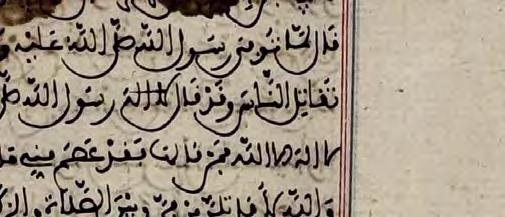 قال لما توفي رسول الله صلى الله عليه و
تقاتل الناس وقد قال رسول الله صلى
لا اله الا الله فمن قالها فقد عصم مني
والله لأقاتلن من فرق بين الصلاة والز